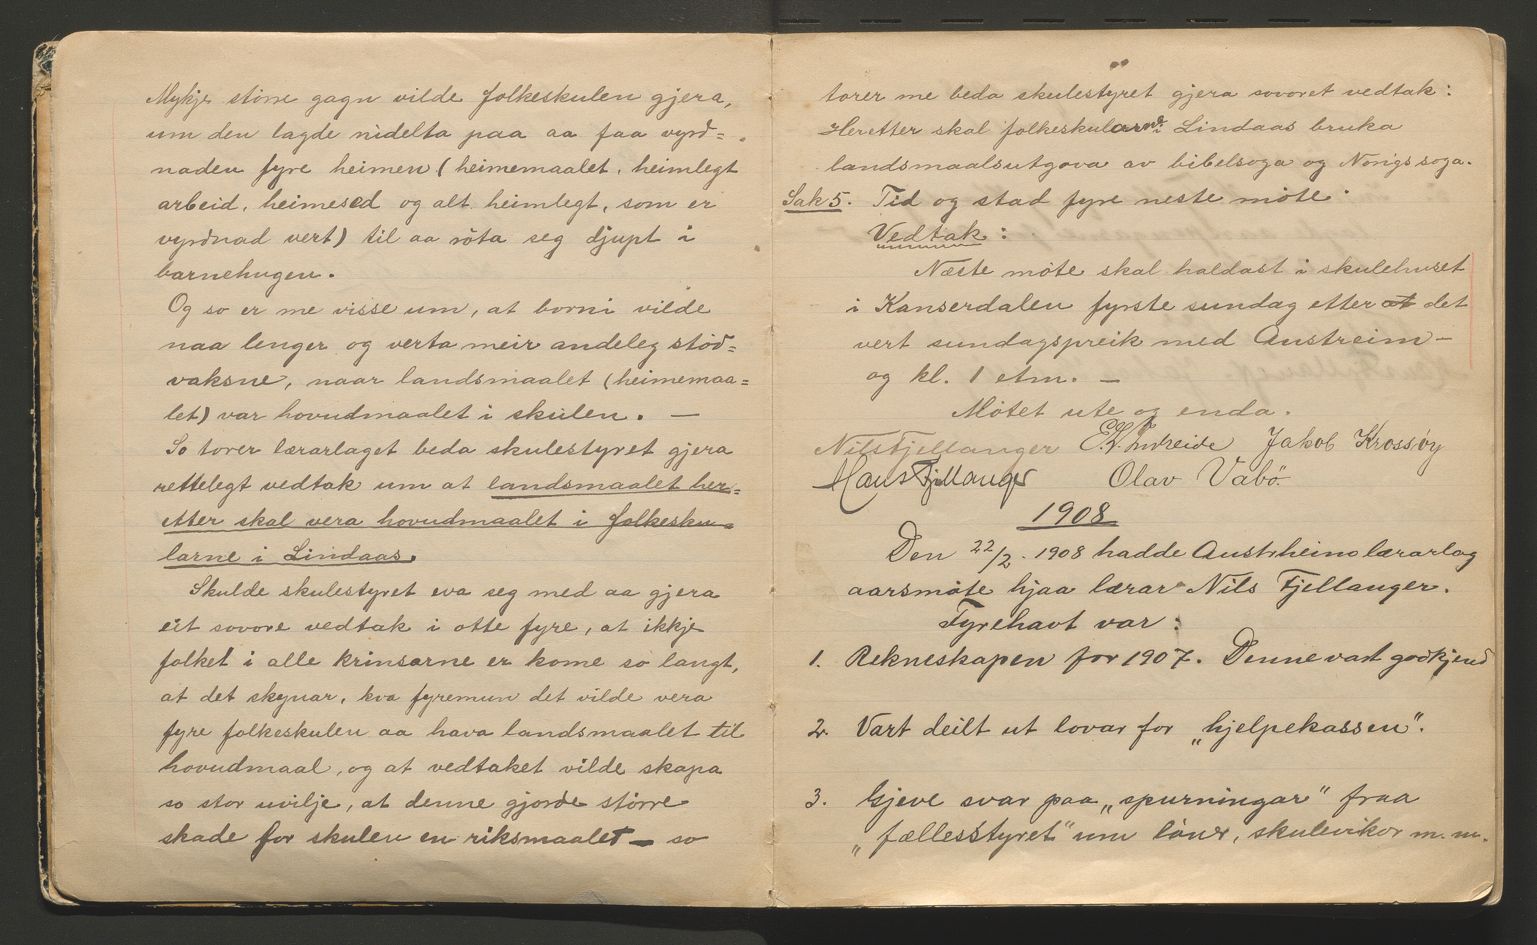 Mykje större gagn vilde folkeskulen gjera,
um den lagde nidelta paa aa faa vyrd=
naden fyre heimen (heimemaalet, heimlegt
arbeid, heimesed og alt heimlegt, som er
vyrdnad vert) til aa röta seg djupt i
barnehugen.
Og so er me visse um, at borni vilde
naa lenger og verta meir andeleg stöd=
vaksne, naar landsmaalet (heimemaa=
let) var hovudmaalet i skulen. —
So torer lærarlaget beda skulestyret gjera
rettelegt vedtak um at landsmaalet her=
etter skal vera hovudmaalet i folkesku=
larne i Lindaas.
Skulde skulestyret eva seg med aa gjera
eit sovore vedtak i otte fyre, at ikkje
folket i alle krinsarne er kome so langt,
at det skynar, kva fyremun det vilde vera
fyre folkeskulen aa hava landsmaalet til
hovudmaal, og at vedtaket vilde skapa
so stor uvilje, at denne gjorde större
skade for skulen en riksmaalet — so
torer me beda skulestyret gjera sovoret vedtak:
Heretter skal folkeskularne i Lindaas bruka
landsmaalsutgova av bibelsoga og Norigssoga.
Sak 5. Tid og stad fyre neste möte.
Vedtak:
Næste möte skal haldast i skulehuset
i Kanserdalen fyrste sundag etter at det
vert sundagspreik med Austreim —
og kl. 1 etm. —
Mötet ute og enda.
Nils Fjellanger Jakob Krossøy
Hans Fjellanger Olav Vabö
1908
Den 22/2. 1908 hadde Austrheims lærarlag
aarsmöte hjaa lærar Nils Fjellanger.
Fyrehavt var:
1. Rekneskapen for 1907. Denne vart godkjend
2. Vart deilt ut lovar for „hjelpekassen".
3. Gjeve svar paa „spurningar" fraa
„fællesstyret" um löner, skulevikor m. m.